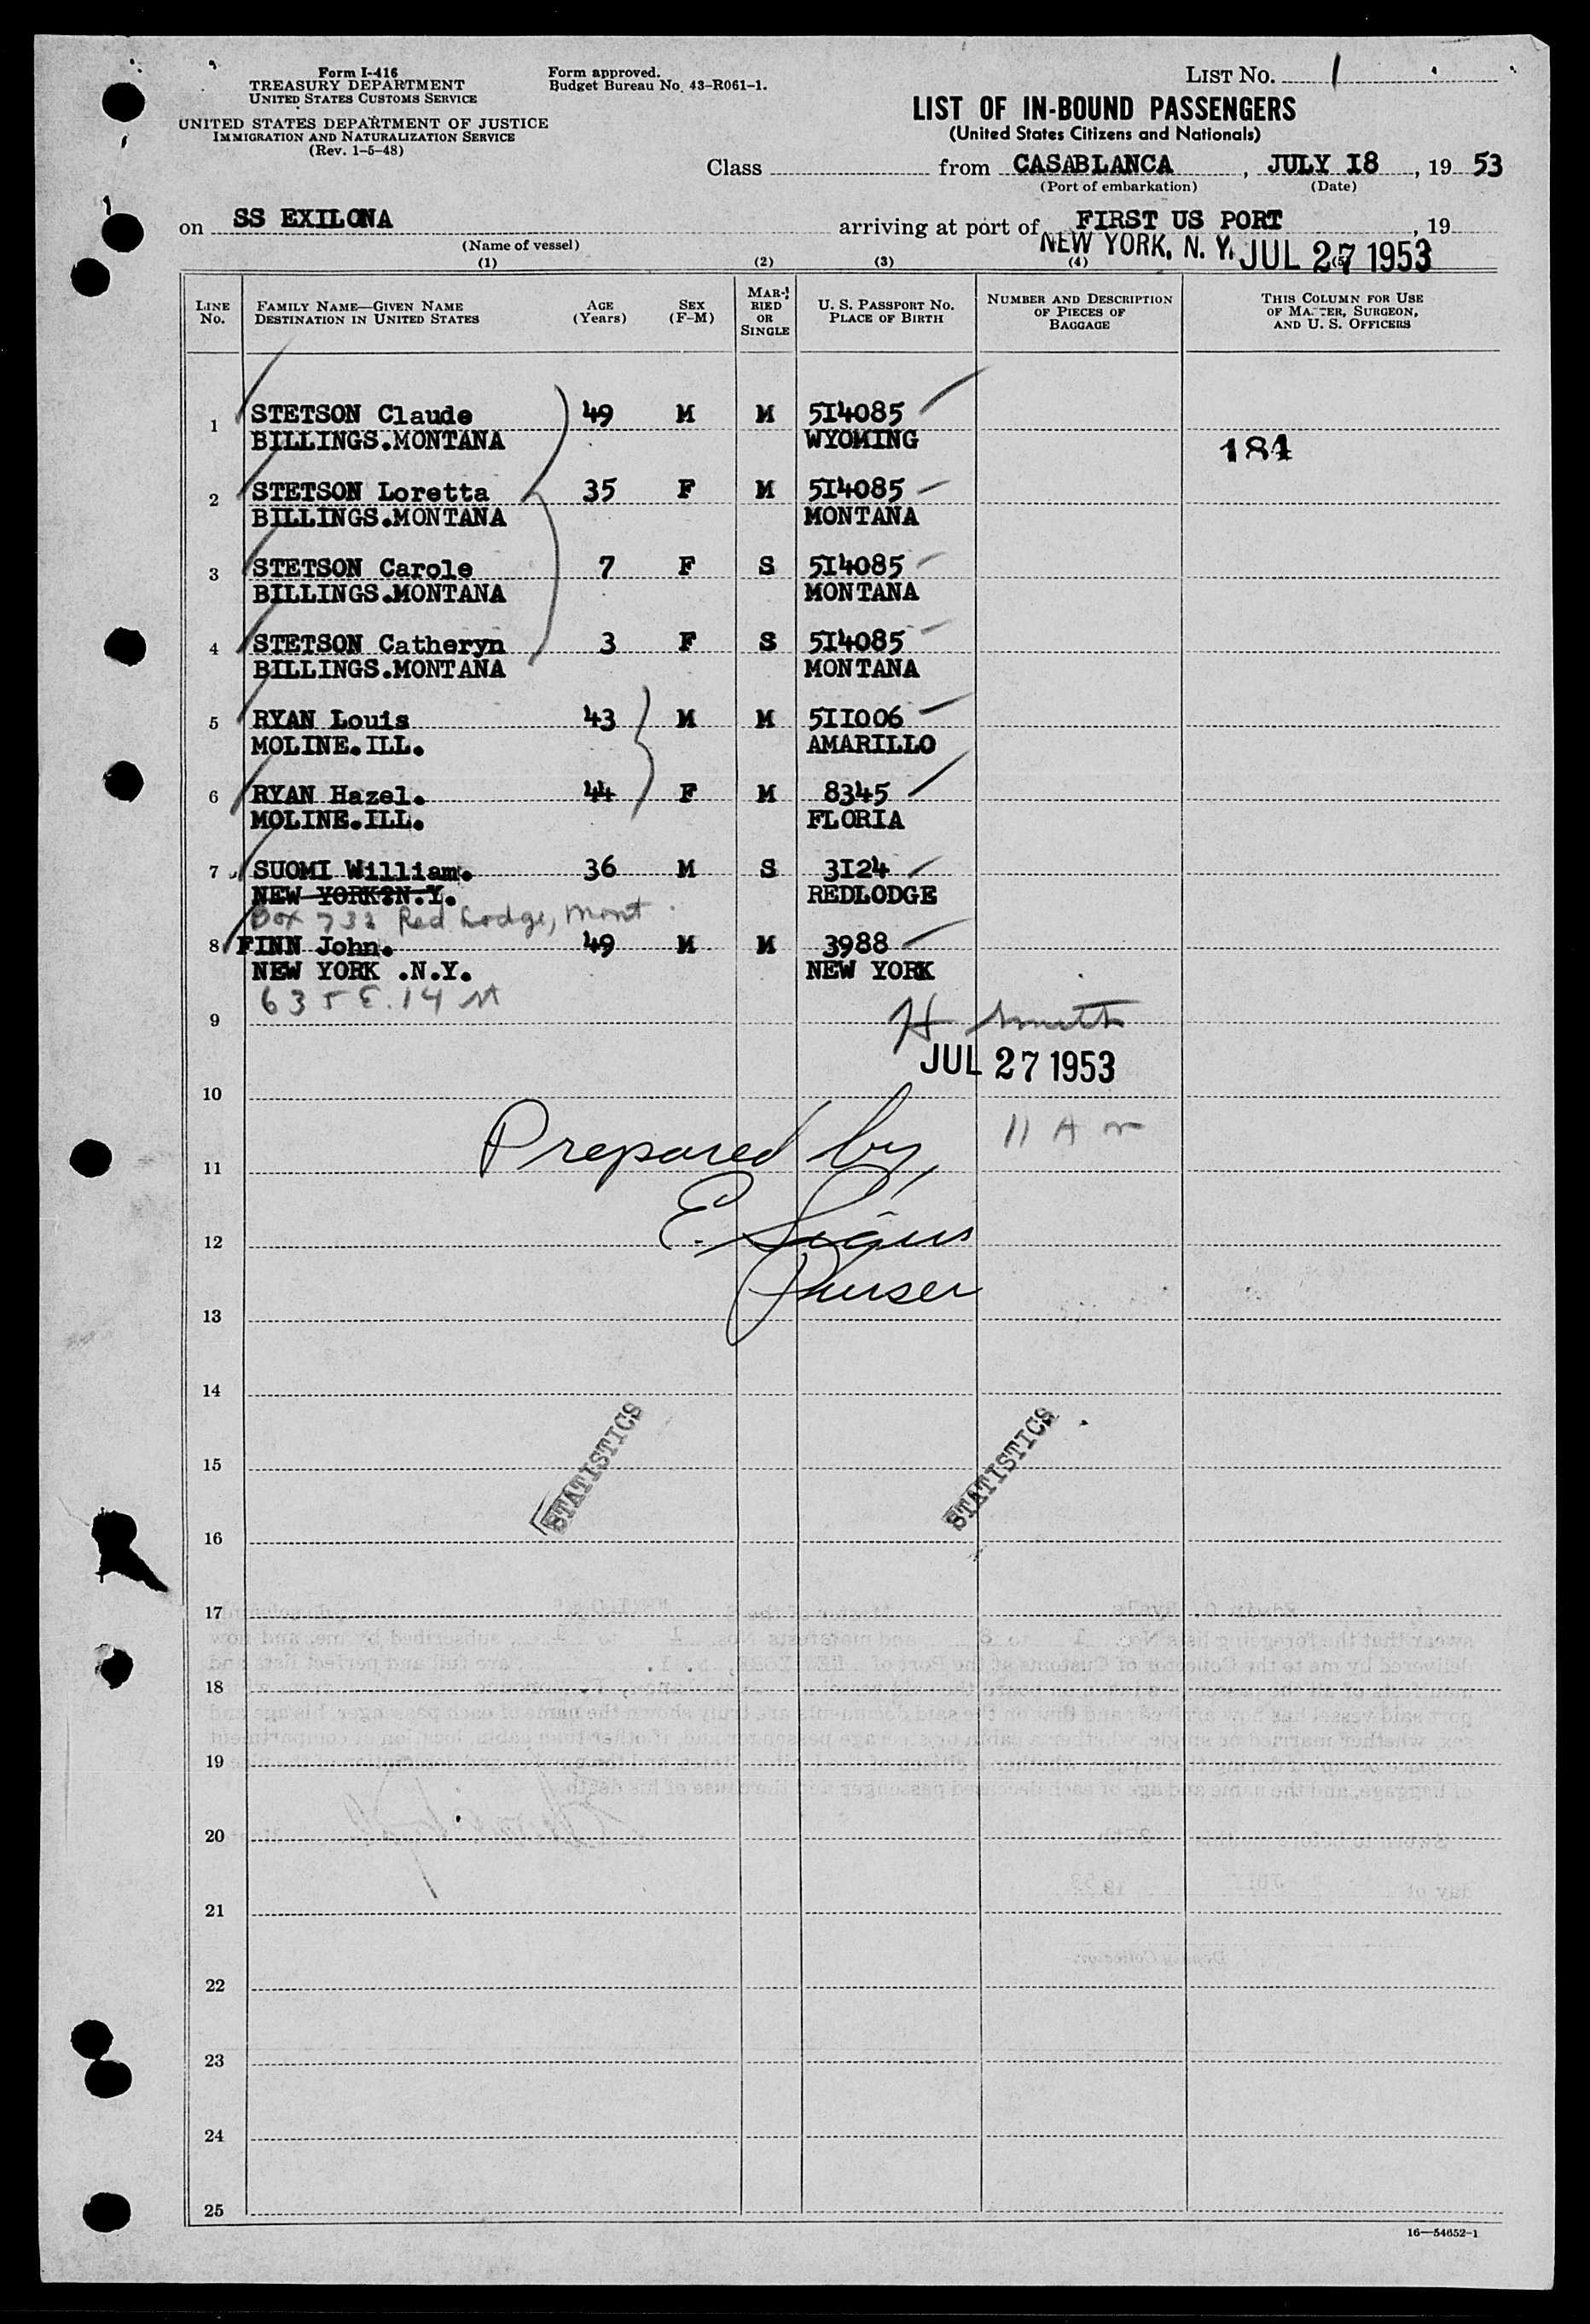 Form I-416
TREASURY DEPARTMENT
UNITED STATES CUSTOMS SERVICE
UNITED STATES DEPARTMENT OF JUSTICE
IMMIGRATION AND NATURALIZATION SERVICE
(Rev. 1-5-48)
Form approved.
Budget Bureau No. 43-R061-1.
LIST NO. 1
LIST OF IN-BOUND PASSENGERS
(United States Citizens and Nationals)
Class from CASABLANCA, JULY I8, 19 53
(Port of embarkation) (Date)
on SS EXILONA arriving at port of FIRST US PORT, 19
(Name of vessel) NEW YORK, N. Y. JUL 27 1953
(1) (2) (3) (4) (5)
LINE No. FAMILY NAME—GIVEN NAME DESTINATION IN UNITED STATES AGE (Years) SEX (F-M) MARRIED OR SINGLE U. S. PASSPORT NO. PLACE OF BIRTH NUMBER AND DESCRIPTION OF PIECES OF BAGGAGE THIS COLUMN FOR USE OF MASTER, SURGEON, AND U. S. OFFICERS
1 STETSON Claude 49 M M 5I4085
BILLINGS.MONTANA WYOMING 184
2 STETSON Loretta 35 F M 5I4085
BILLINGS.MONTANA MONTANA
3 STETSON Carole 7 F S 5I4085
BILLINGS.MONTANA MONTANA
4 STETSON Catheryn 3 F S 5I4085
BILLINGS.MONTANA MONTANA
5 RYAN Louis 43 M M 5II006
MOLINE.ILL. AMARILLO
6 RYAN Hazel. 44 F M 8345
MOLINE.ILL. FLORIA
7 SUOMI William. 36 M S 3I24
NEW YORK?N.Y. REDLODGE
Box 732 Red Lodge, Mont
8 FINN John. 49 M M 3988
NEW YORK .N.Y. NEW YORK
635 E. 14 st
9 H Smith
JUL 27 1953
10
11 A m
11 Prepared by,
12 E. Sigus
Purser
13
14
STATISTICS STATISTICS
15
16
17
18
19
20
21
22
23
24
25
16—54652-1